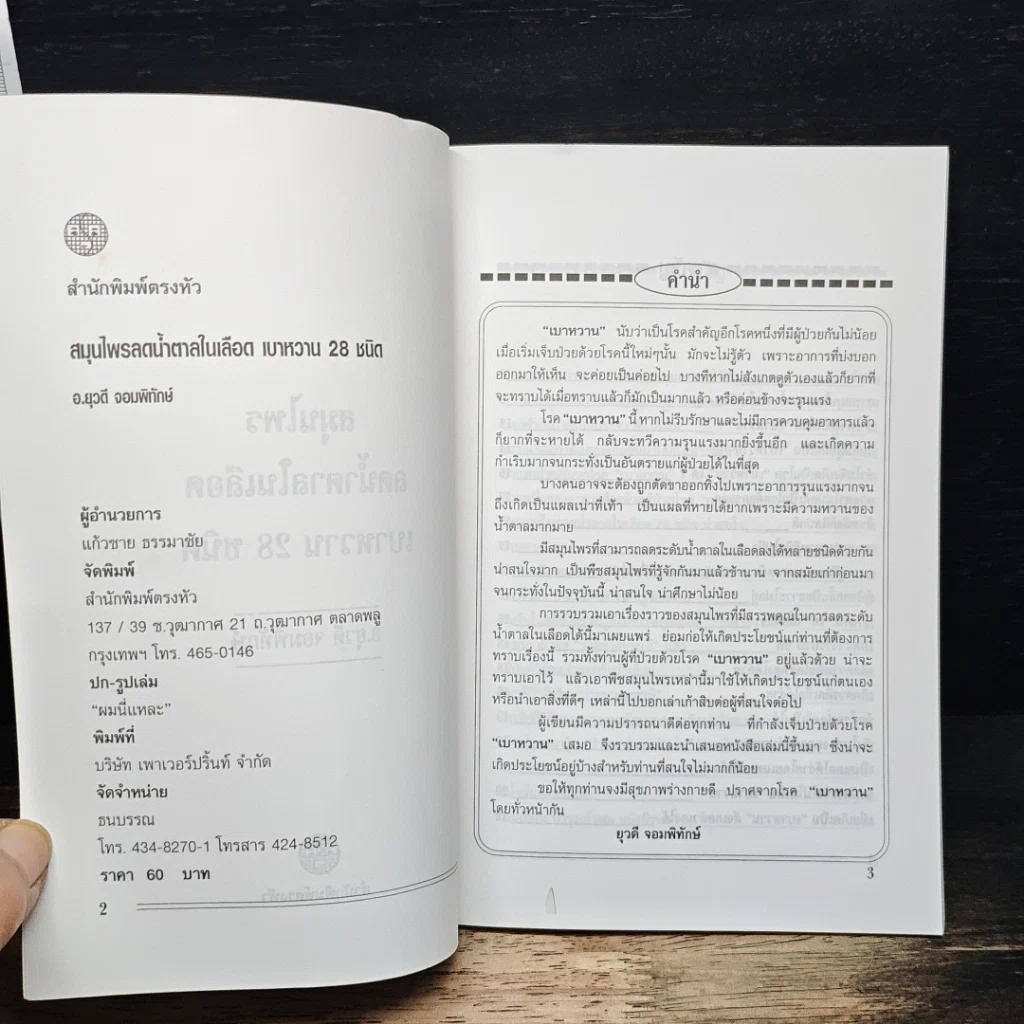 สำนักพิมพ์ตรงหัว
สมุนไพรลดน้ำตาลในเลือด เบาหวาน 28 ชนิด
อ.ยุวดี จอมพิทักษ์
ผู้อำนวยการ
แก้วชาย ธรรมาชัย
จัดพิมพ์
สำนักพิมพ์ตรงหัว
137 / 39 ซ.วุฒากาศ 21 ถ.วุฒากาศ ตลาดพลู
กรุงเทพฯ โทร. 465-0146
ปก-รูปเล่ม
“ผมนี่แหละ”
พิมพ์ที่
บริษัท เพาเวอร์ปริ้นท์ จำกัด
จัดจำหน่าย
ธนบรรณ
โทร. 434-8270-1 โทรสาร 424-8512
ราคา 60 บาท
2
คำนำ
“เบาหวาน” นับว่าเป็นโรคสำคัญอีกโรคหนึ่งที่มีผู้ป่วยกันไม่น้อย
เมื่อเริ่มเจ็บป่วยด้วยโรคนี้ใหม่ๆนั้น มักจะไม่รู้ตัว เพราะอาการที่บ่งบอก
ออกมาให้เห็น จะค่อยเป็นค่อยไป บางทีหากไม่สังเกตดูตัวเองแล้วก็ยากที่
จะทราบได้เมื่อทราบแล้วก็มักเป็นมากแล้ว หรือค่อนข้างจะรุนแรง
โรค “เบาหวาน” นี้ หากไม่รีบรักษาและไม่มีการควบคุมอาหารแล้ว
ก็ยากที่จะหายได้ กลับจะทวีความรุนแรงมากยิ่งขึ้นอีก และเกิดความ
กำเริบมากจนกระทั่งเป็นอันตรายแก่ผู้ป่วยได้ในที่สุด
บางคนอาจจะต้องถูกตัดขาออกทิ้งไปเพราะอาการรุนแรงมากจน
ถึงเกิดเป็นแผลเน่าที่เท้า เป็นแผลที่หายได้ยากเพราะมีความหวานของ
น้ำตาลมากมาย
มีสมุนไพรที่สามารถลดระดับน้ำตาลในเลือดลงได้หลายชนิดด้วยกัน
น่าสนใจมาก เป็นพืชสมุนไพรที่รู้จักกันมาแล้วช้านาน จากสมัยเก่าก่อนมา
จนกระทั่งในปัจจุบันนี้ น่าสนใจ น่าศึกษาไม่น้อย
การรวบรวมเอาเรื่องราวของสมุนไพรที่มีสรรพคุณในการลดระดับ
น้ำตาลในเลือดได้นี้มาเผยแพร่ ย่อมก่อให้เกิดประโยชน์แก่ท่านที่ต้องการ
ทราบเรื่องนี้ รวมทั้งท่านผู้ที่ป่วยด้วยโรค “เบาหวาน” อยู่แล้วด้วย น่าจะ
ทราบเอาไว้ แล้วเอาพืชสมุนไพรเหล่านี้มาใช้ให้เกิดประโยชน์แก่ตนเอง
หรือนำเอาสิ่งที่ดีๆ เหล่านี้ไปบอกเล่าเก้าสิบต่อผู้ที่สนใจต่อไป
ผู้เขียนมีความปรารถนาดีต่อทุกท่าน ที่กำลังเจ็บป่วยด้วยโรค
“เบาหวาน” เสมอ จึงรวบรวมและนำเสนอหนังสือเล่มนี้ขึ้นมา ซึ่งน่าจะ
เกิดประโยชน์อยู่บ้างสำหรับท่านที่สนใจไม่มากก็น้อย
ขอให้ทุกท่านจงมีสุขภาพร่างกายดี ปราศจากโรค “เบาหวาน”
โดยทั่วหน้ากัน
ยุวดี จอมพิทักษ์
3